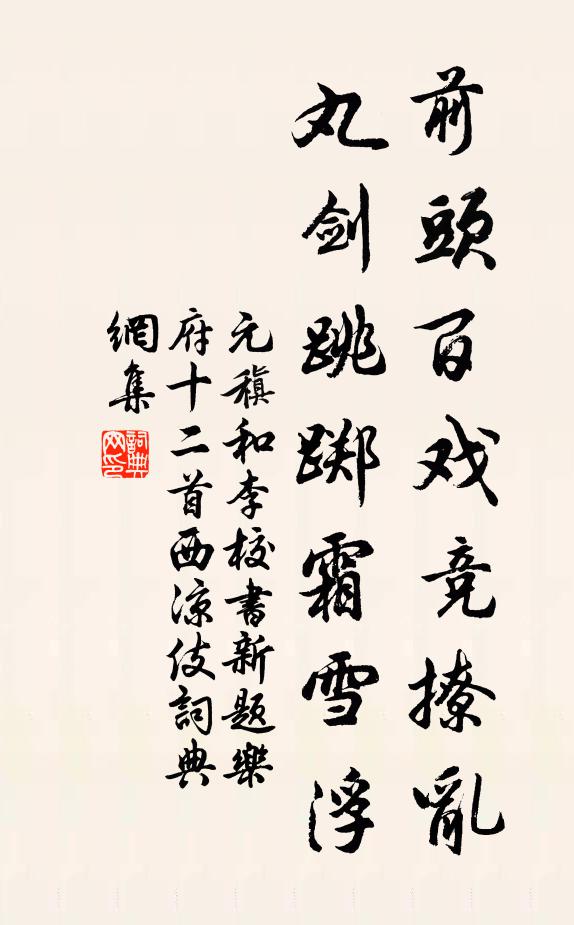 前頭百戏竞撩亂
丸剑跳踯霜雪浮
元稹和李校書新题樂
府十二首西凉伎詞典
網集
詞典網印